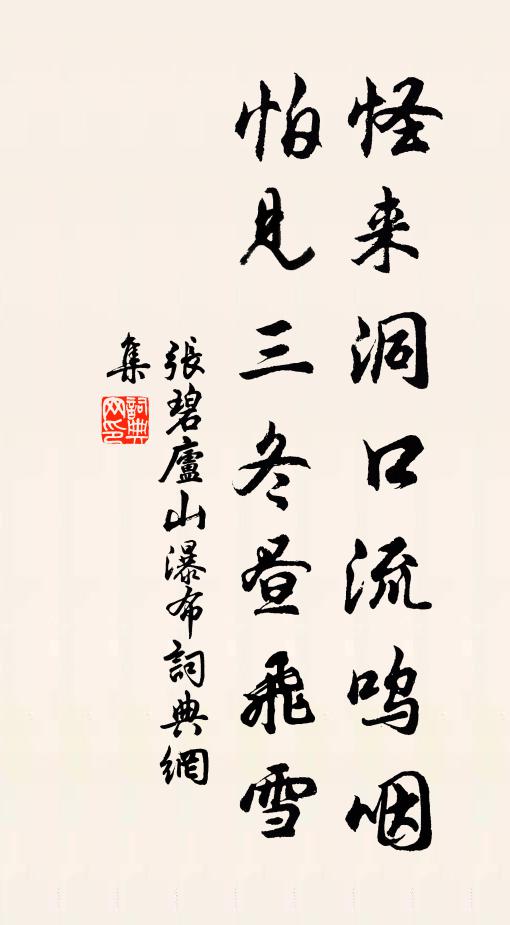 怪来洞口流呜咽
怕见三冬昼飛雪
張碧廬山瀑布詞典網
集
詞典网印